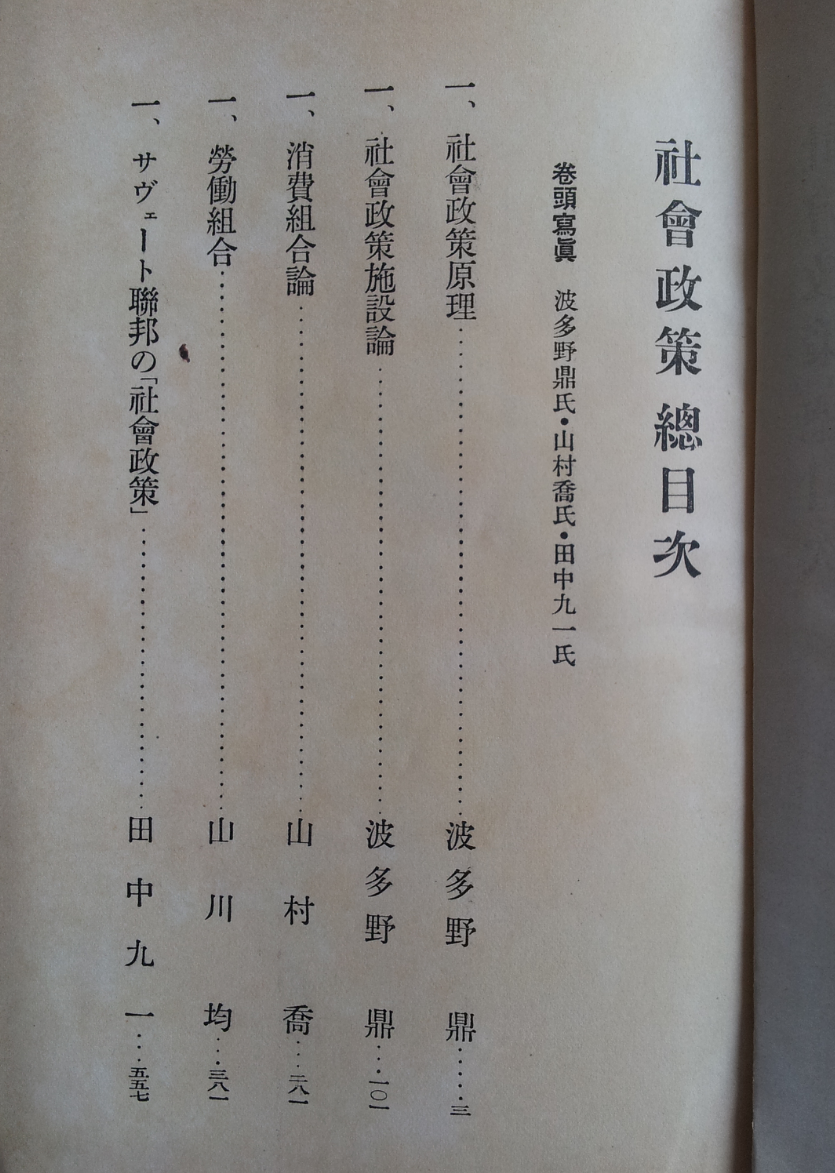 社會政策 總目次
卷頭寫眞 波多野鼎氏・山村喬氏・田中九一氏
一、社會政策原理……………波多野鼎……三
一、社會政策施設論……………波多野鼎…一〇一
一、消費組合論……………山村喬…二八一
一、勞働組合……………山川均…三八一
一、サヴェート聯邦の「社會政策」……………田中九一…五五七